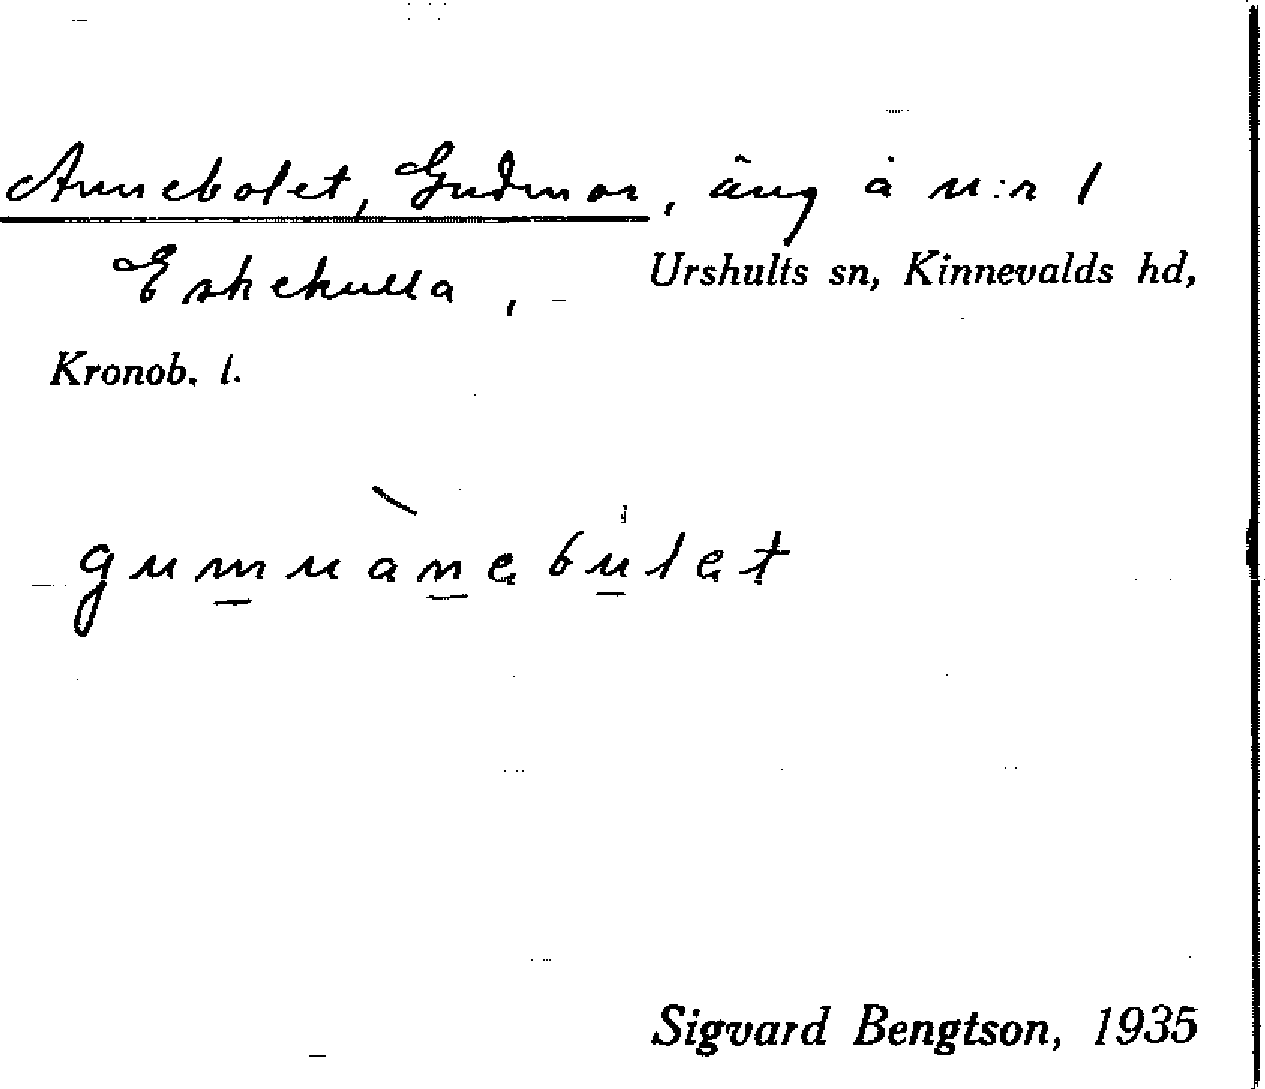 Annebolet, Gudmor, äng å n:r 1
Eskekulla, Urshults sn, Kinnevalds hd,
Kronob. l.
gumuànebulet
Sigvard Bengtson, 1935